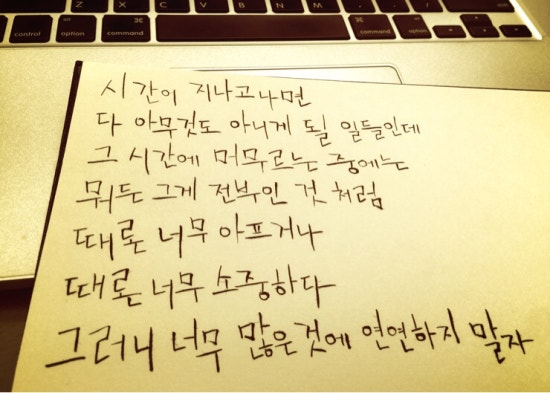 control option command command option
시간이 지나고나면
다 아무것도 아니게 될 일들인데
그 시간에 머무르는 중에는
뭐든 그게 전부인 것 처럼
때론 너무 아프거나
때론 너무 소중하다
그러니 너무 많은것에 연연하지 말자